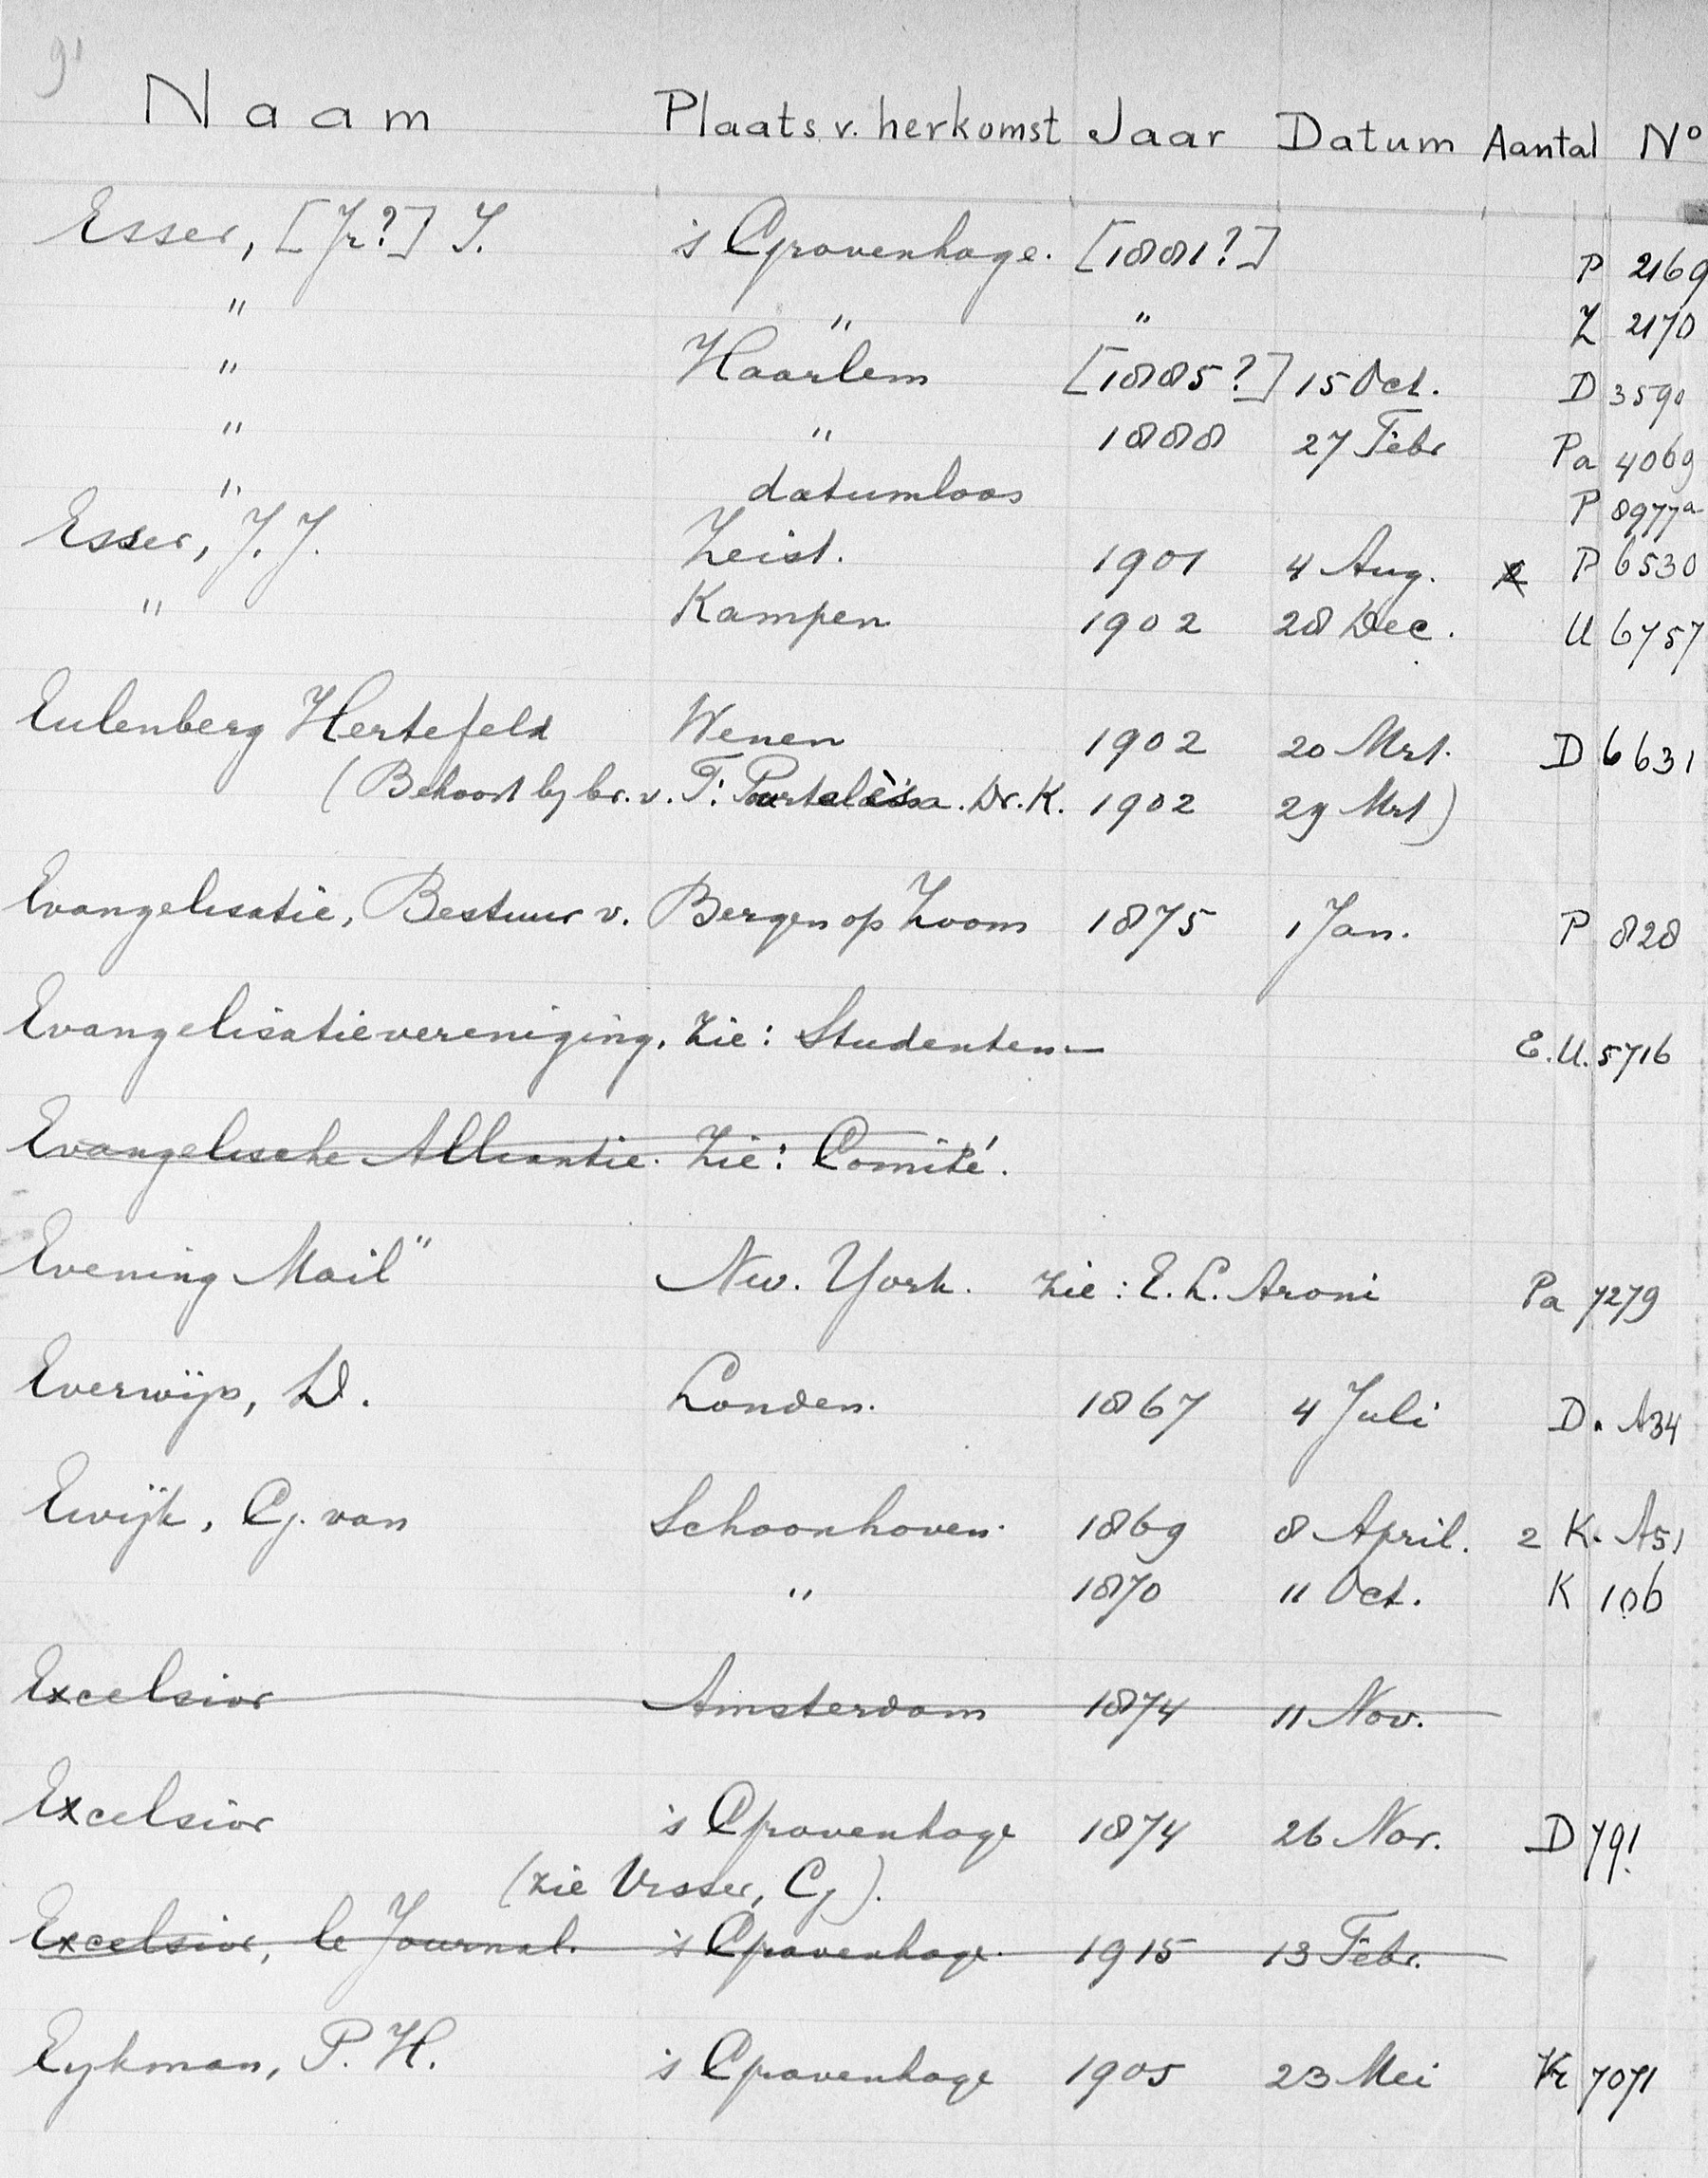 91
Naam Plaats v. herkomst Jaar Datum Aantal No
Esser, [Jr?] I. 's Gravenhage. [1881?] P 2169
" " " Z 2170
" Haarlem [1885?] 15 Oct. D 3590
" " 1888 27 Febr Pa 4069
" datumloos P 8977a
Esser, J. J. Zeist. 1901 4 Aug. P 6530
" Kampen 1902 28 Dec. U 6757
Eulenberg Hertefeld Wenen 1902 20 Mrt. D 6631
(Behoort by br. v. F: Pourtalès a. Dr. K. 1902 29 Mrt)
Evangelisatie, Bestuur v. Bergen op Zoom 1875 1 Jan. P 828
Evangelisatievereniging. Zie: Studenten— E.U. 5716
Evangelische Alliantie. Zie: Comité.
Evening Mail" New. York. Zie: E. L. Aroni Pa 7279
Everwijn, D. Londen. 1867 4 Juli D. A34
Ewijk, G. van Schoonhoven. 1869 8 April. 2 K. A51
" 1870 11 Oct. K 106
Excelsior Amsterdam 1874 11 Nov.
Excelsior 's Gravenhage 1874 26 Nov. D 791
(Zie Visser, G).
Excelsior, le Journal. 's Gravenhage. 1915 13 Febr.
Eykman, P. H. 's Gravenhage 1905 23 Mei Kr 7071